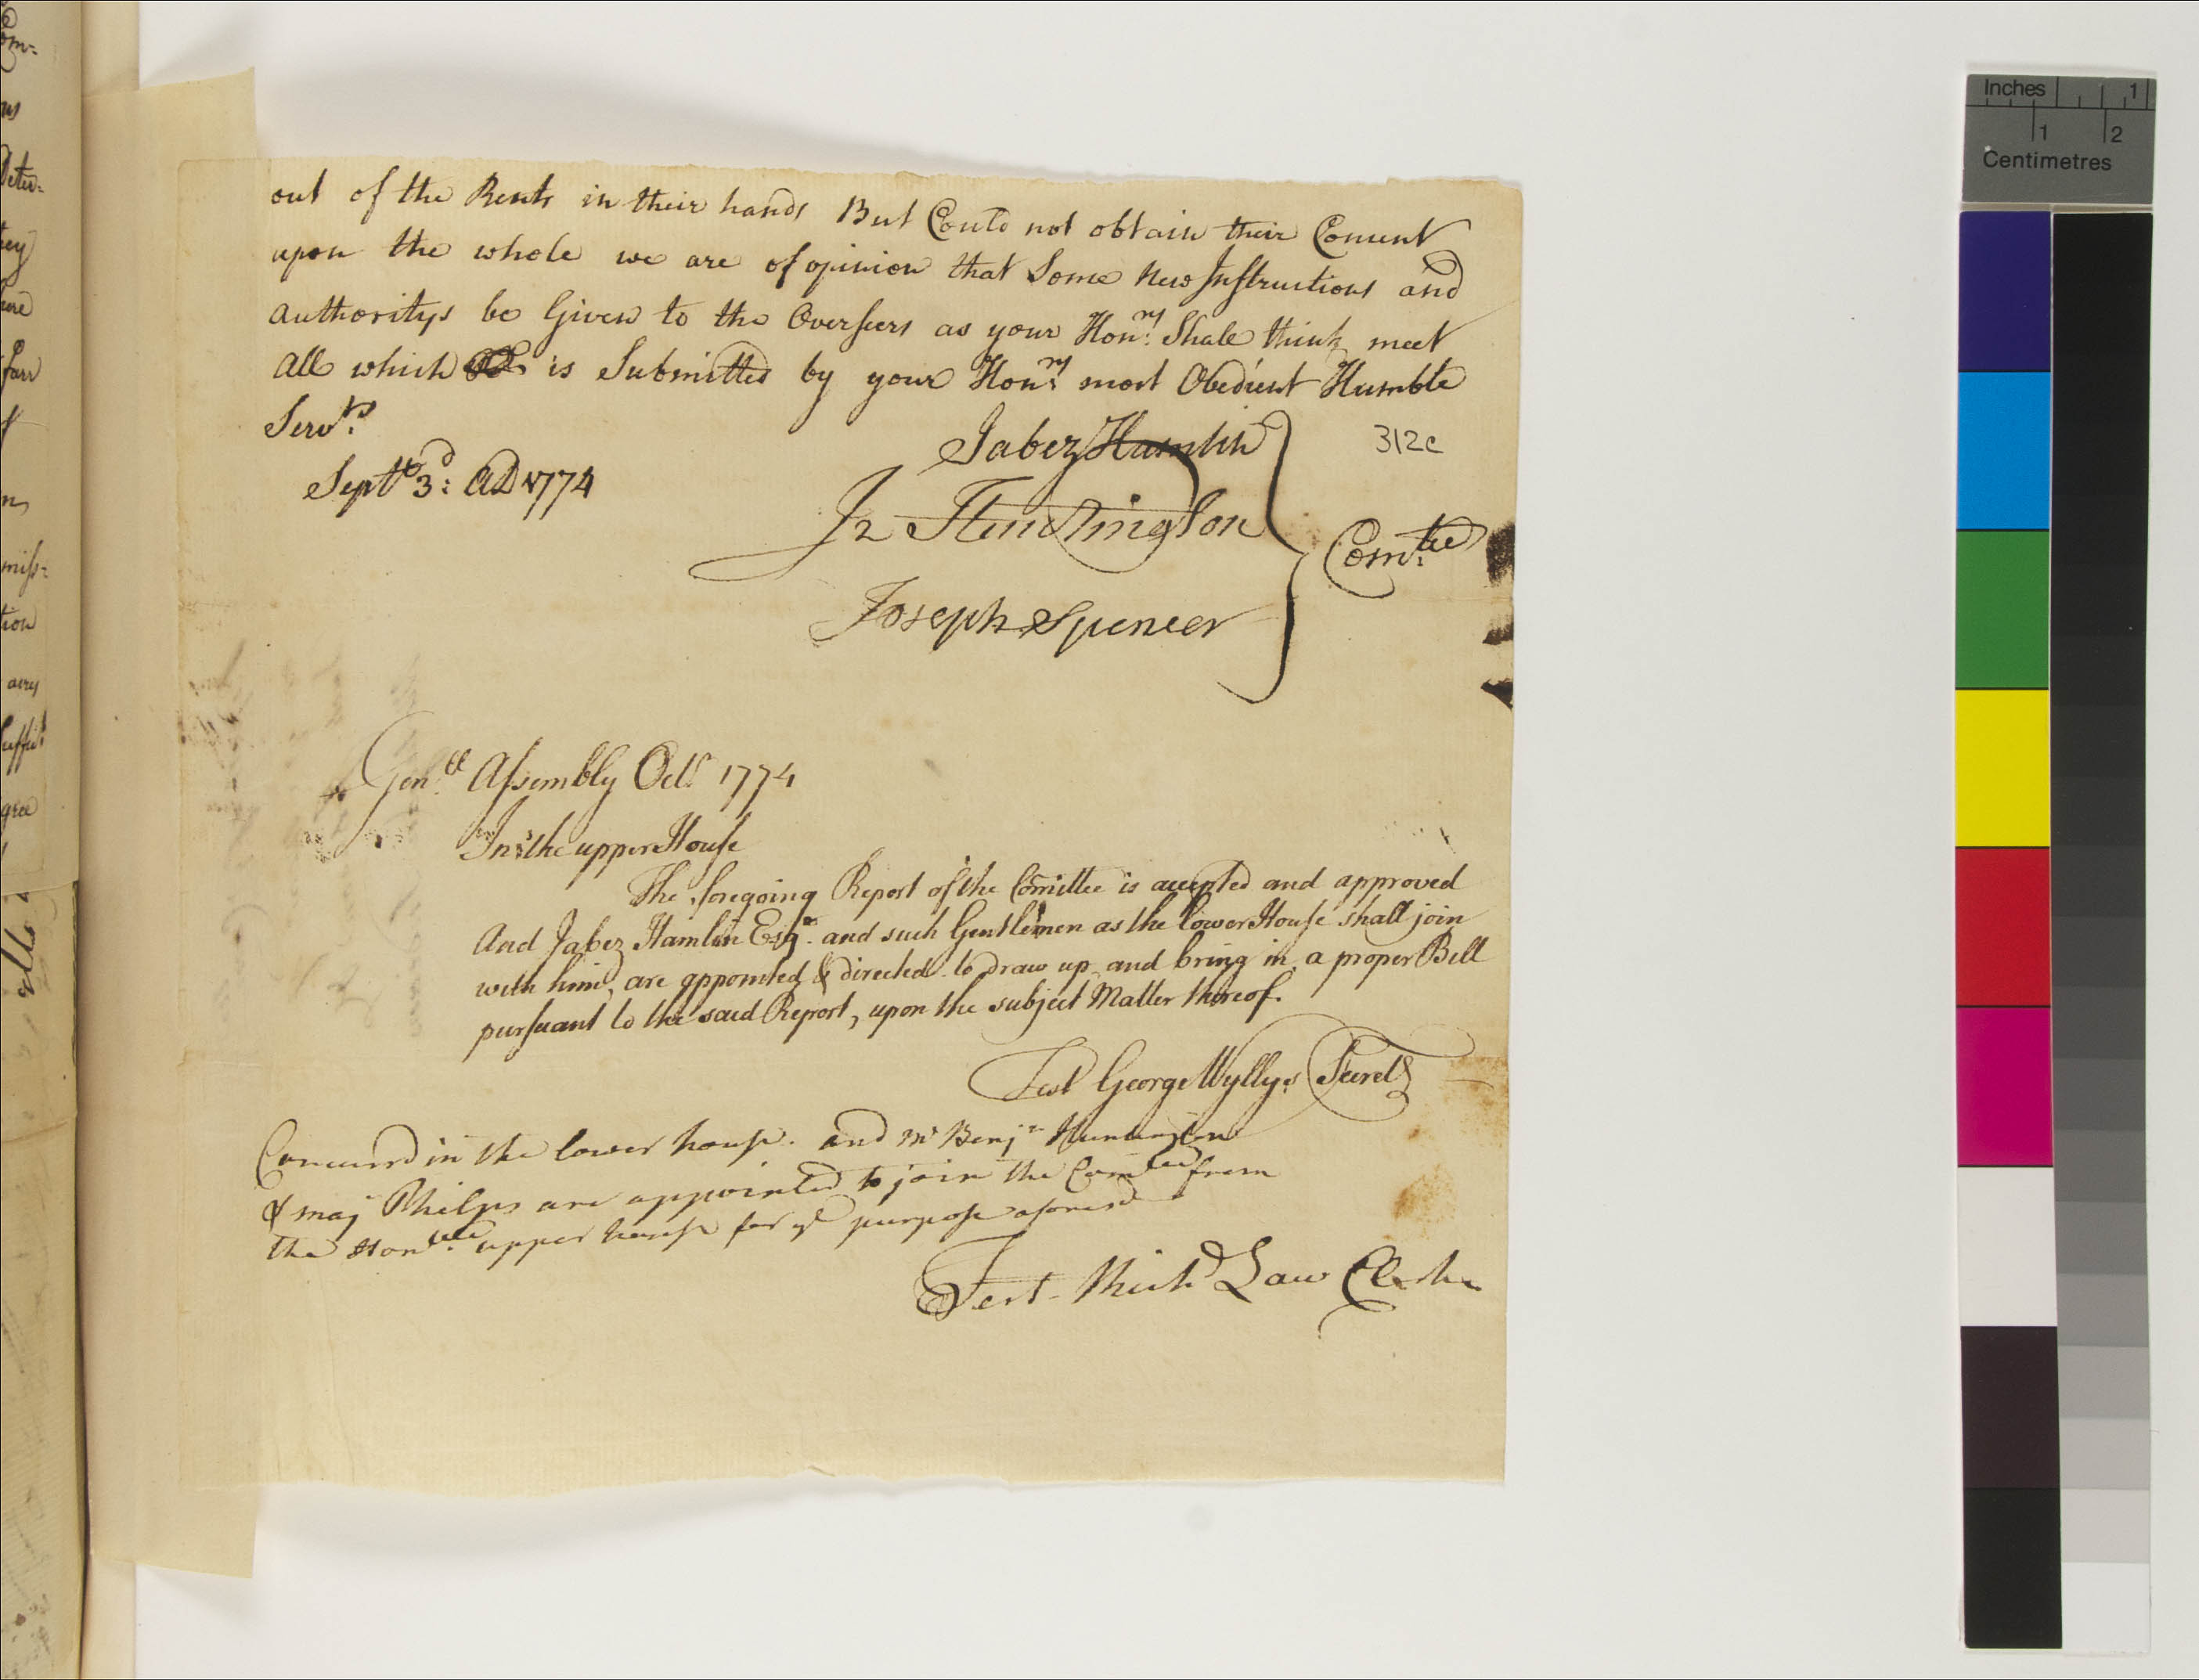 out of the Rents in their hands But Could not obtain their Consent
upon the whole we are of opinion that Some New Instructions and
authoritys be Given to the Overseers as your Honrs. Shale think meet
all which is Submitted by your Honrs. most Obedient Humble
Servts.
Septr 3d: AD 1774
Jabez Hamlin
Jz Huntington
Joseph Spencer
Comtee
312c
Genll. Assembly Octr. 1774
In the upper House
The foregoing Report of the Comittee is accepted and approved
And Jabez Hamlin Esqr. and such Gentlemen as the lower House shall join
with him, are appointed & directed to draw up and bring in a proper Bill
pursuant to the said Report, upon the subject Matter thereof.
Test George Wyllys Secrety
Concurrd in the lower house. and Mr Benjn Huntington
& maj Phelps are appointed to join the Comtee from
the Honble. upper house for ye purpose aforesd
Test Richd Law Clerk
Inches 1
1 2
Centimetres